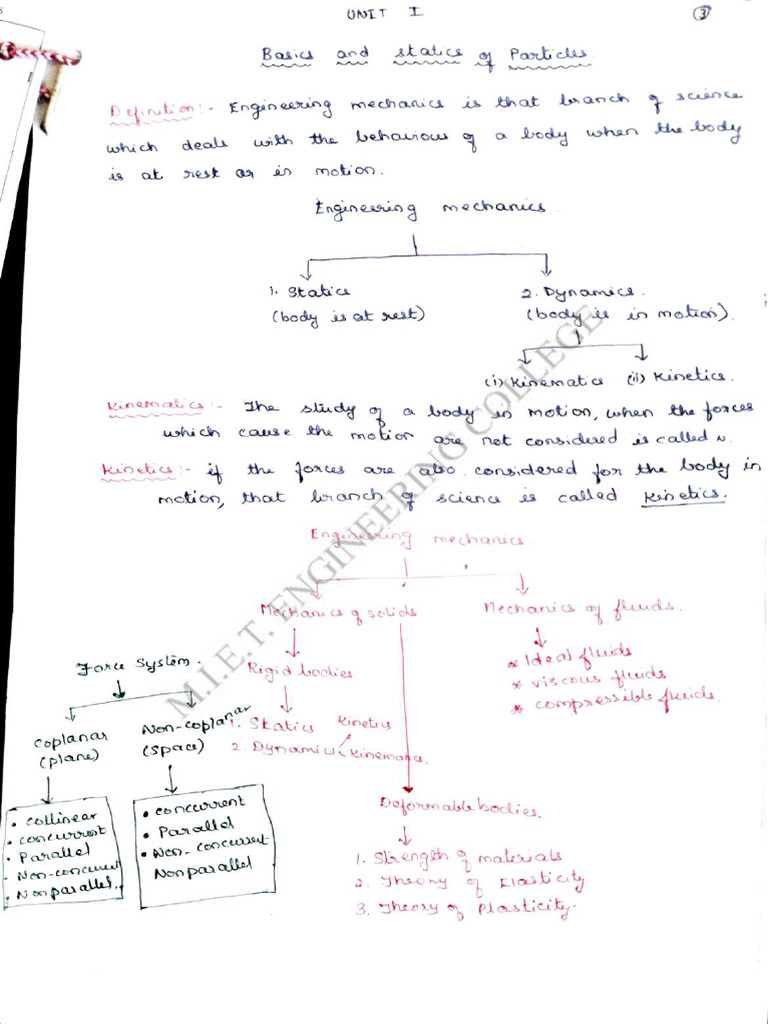 UNIT I
3
Basics and statics of Particles.
Definition:- Engineering mechanics is that branch of science
which deals with the behaviour of a body when the body
is at rest or in motion.
Engineering mechanics.
1. Statics
2. Dynamics.
(body is at rest)
(body is in motion).
(i) Kinematics (ii) Kinetics.
Kinematics:- The study of a body in motion, when the forces
which cause the motion are not considered is called
Kinetics:- if the forces are also considered for the body in
motion, that branch of science is called Kinetics.
Engineering mechanics.
Mechanics of solids
Mechanics of fluids.
Rigid bodies
* Ideal fluids
* viscous fluids
* compressible fluids.
1. Statics
2. Dynamics
Kinetics
Kinematics.
Force System.
Coplanar
(plane)
Non-coplanar
(space)
• Collinear
• concurrent
• Parallel
• Non-concurrent
• Nonparallel.
• concurrent
• Parallel
• Non-concurrent
Nonparallel
Deformable bodies.
1. Strength of materials
2. Theory of Elasticity
3. Theory of Plasticity.
M.I.E.T. ENGINEERING COLLEGE